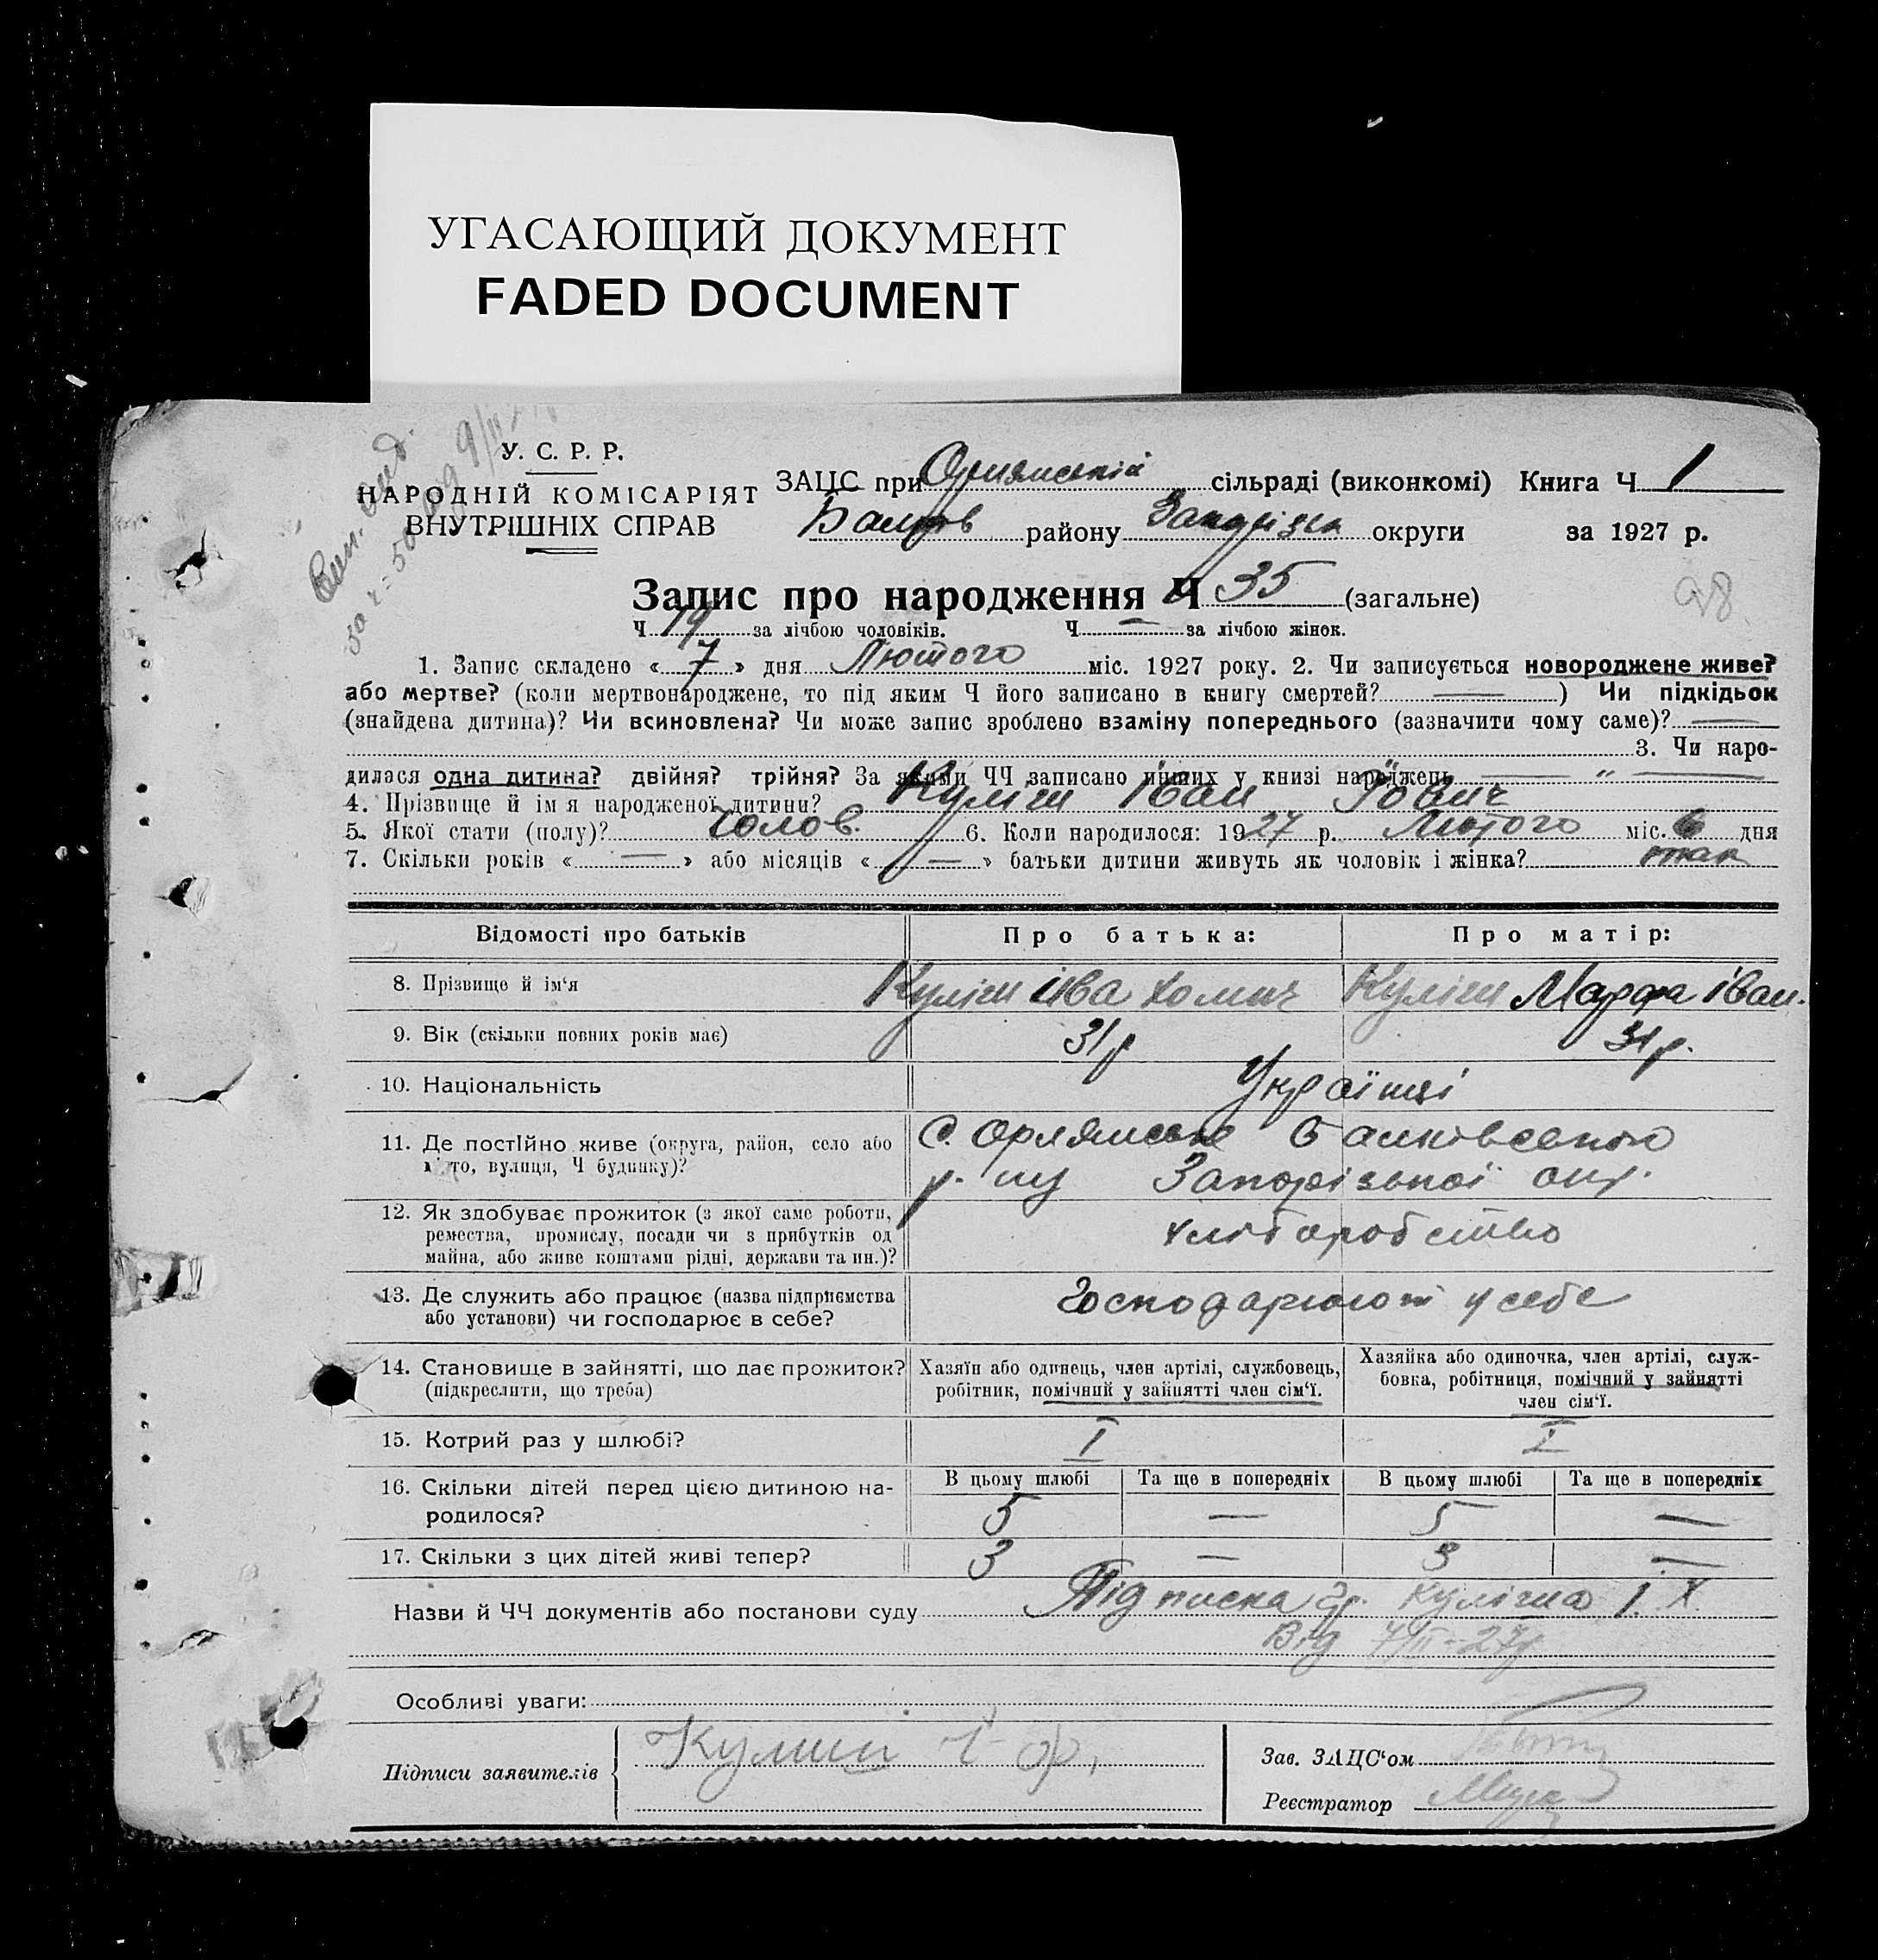 УГАСАЮЩИЙ ДОКУМЕНТ
FADED DOCUMENT
У. С. Р. Р.
НАРОДНІЙ КОМІСАРІЯТ
ВНУТРІШНІХ СПРАВ
ЗАЦС при Орлянській сільраді (виконкомі) Книга Ч 1
району округи за 1927 р.
Запис про народження Ч 35 (загальне)
98
Ч 19 за лічбою чоловіків. Ч — за лічбою жінок.
1. Запис складено « 7 » дня Лютого міс. 1927 року. 2. Чи записується новороджене живе?
або мертве? (коли мертвонароджене, то під яким Ч його записано в книгу смертей? — ) Чи підкідьок
(знайдена дитина)? Чи всиновлена? Чи може запис зроблено взаміну попереднього (зазначити чому саме)? —
3. Чи наро-
дилася одна дитина? двійня? трійня? За якими ЧЧ записано инших у книзі народжень — „ —
4. Прізвище й ім я народженої дитини? Куліш Іван
5. Якої стати (полу)? Чолов. 6. Коли народилося: 1927 р. Лютого міс. 6 дня
7. Скільки років « — » або місяців « — » батьки дитини живуть як чоловік і жінка? так
Відомості про батьків Про батька: Про матір:
8. Прізвище й ім‘я Куліш Іва Хомич Куліш Марфа Іван.
9. Вік (скільки повних років має) 31 р 31 р.
10. Національність Українці
11. Де постійно живе (округа, район, село або С. Орлянське
місто, вулиця, Ч будинку)? р-ну Запорізької окр.
12. Як здобуває прожиток (з якої саме роботи,
ремества, промислу, посади чи з прибутків од хліборобство
майна, або живе коштами рідні, держави та ин.)?
13. Де служить або працює (назва підприємства Господарюють у себе
або установи) чи господарює в себе?
14. Становище в зайнятті, що дає прожиток? Хазяїн або одинець, член артілі, службовець, Хазяйка або одиночка, член артілі, служ-
(підкреслити, що треба) робітник, помічний у зайнятті член сім‘ї. бовка, робітниця, помічний у зайнятті
член сім‘ї.
15. Котрий раз у шлюбі? I I
В цьому шлюбі Та ще в попередніх В цьому шлюбі Та ще в попередніх
16. Скільки дітей перед цією дитиною на-
родилося? 5 — 5 —
17. Скільки з цих дітей живі тепер? 3 — 3 —
Назви й ЧЧ документів або постанови суду Підписка гр. Куліша І. Х.
Від 7/II-27р
Особливі уваги:
Підписи заявителів Кулиш
Зав. ЗАЦС‘ом
Реєстратор